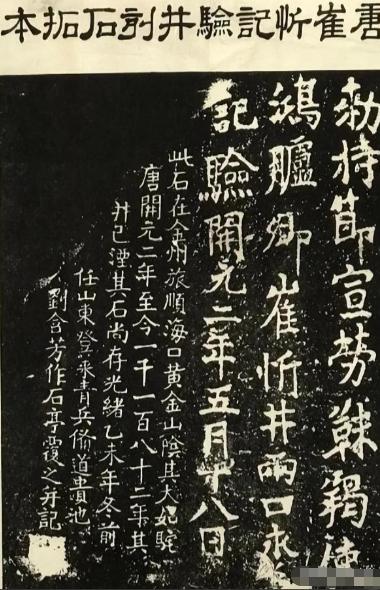 唐崔忻記驗井刻石拓本
勅持節宣勞靺羯使
鴻臚卿崔忻井兩口永爲
記驗開元二年五月十八日
此石在金州旅順海口黃金山陰其大如駝
唐開元二年至今一千一百八十二年其
井已湮其石尚存光緒乙未年冬前
任山東登萊青兵備道貴池
劉含芳作石亭覆之并記